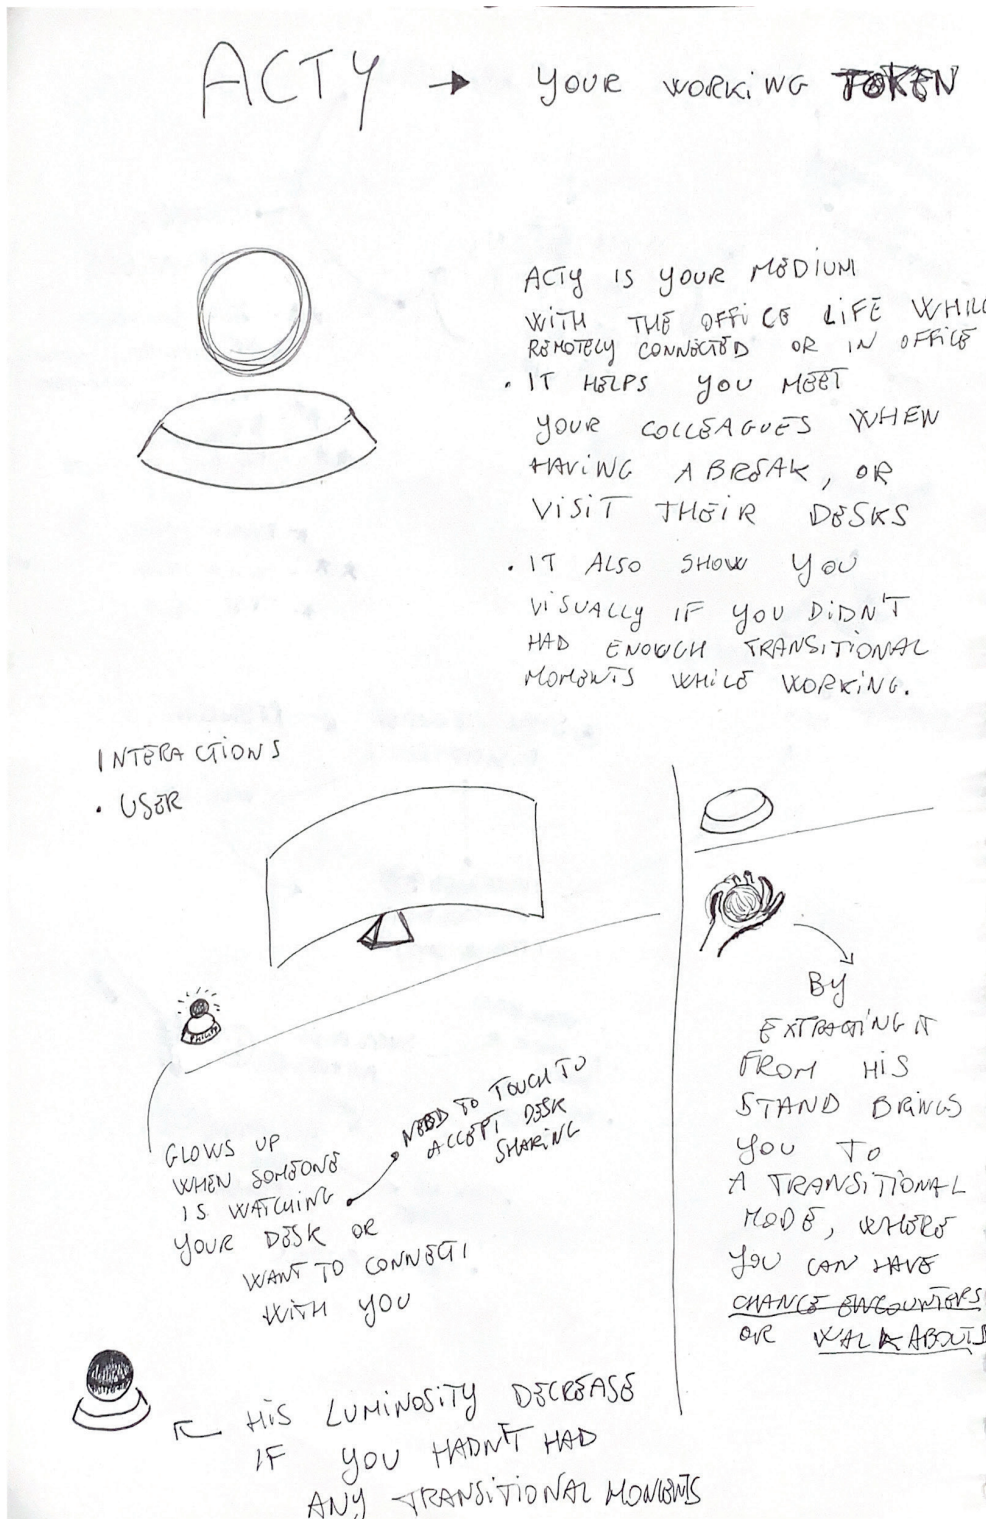 ACTY → YOUR WORKING TOKEN
ACTY IS YOUR MEDIUM
WITH THE OFFICE LIFE WHILE
REMOTELY CONNECTED OR IN OFFICE
• IT HELPS YOU MEET
YOUR COLLEAGUES WHEN
HAVING A BREAK, OR
VISIT THEIR DESKS
• IT ALSO SHOW YOU
VISUALLY IF YOU DIDN'T
HAD ENOUGH TRANSITIONAL
MOMENTS WHILE WORKING.
INTERACTIONS
• USER
PHILIPS
GLOWS UP
WHEN SOMEONE
IS WATCHING
YOUR DESK OR
WANT TO CONNECT
WITH YOU
NEED TO TOUCH TO
ACCEPT DESK
SHARING
BY
EXTRACTING IT
FROM HIS
STAND BRINGS
YOU TO
A TRANSITIONAL
MODE, WHERE
YOU CAN HAVE
CHANCE ENCOUNTERS
OR WALKABOUTS
HIS LUMINOSITY DECREASE
IF YOU HADN'T HAD
ANY TRANSITIONAL MOMENTS